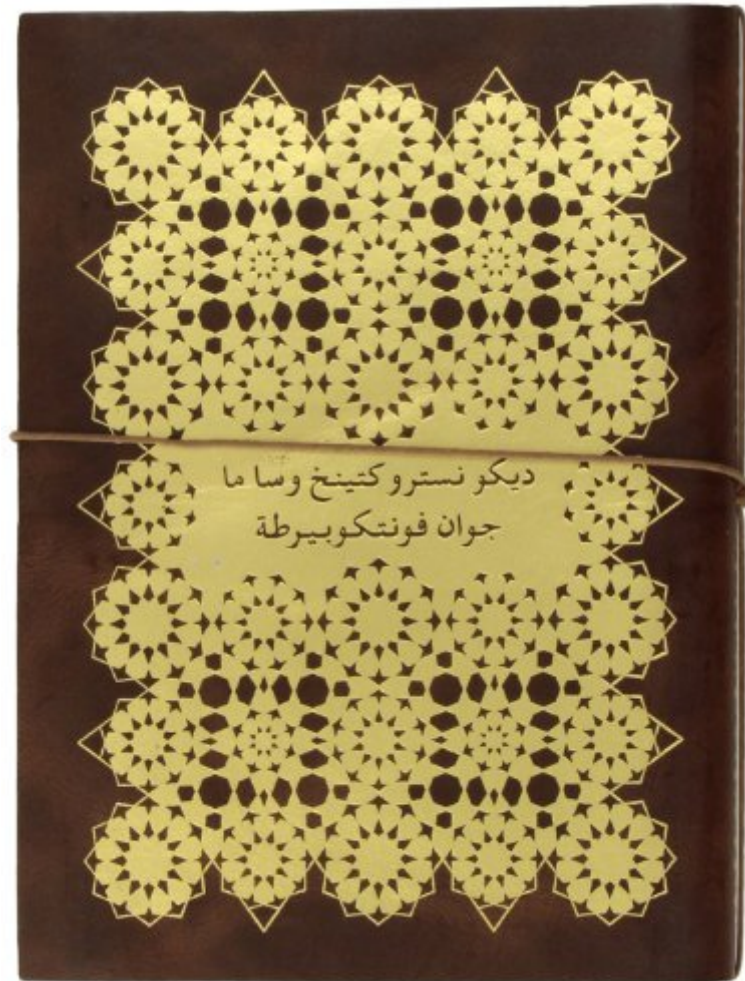 ديكو نستروكتينخ وسا ما
جوان فونتكوبيرطة